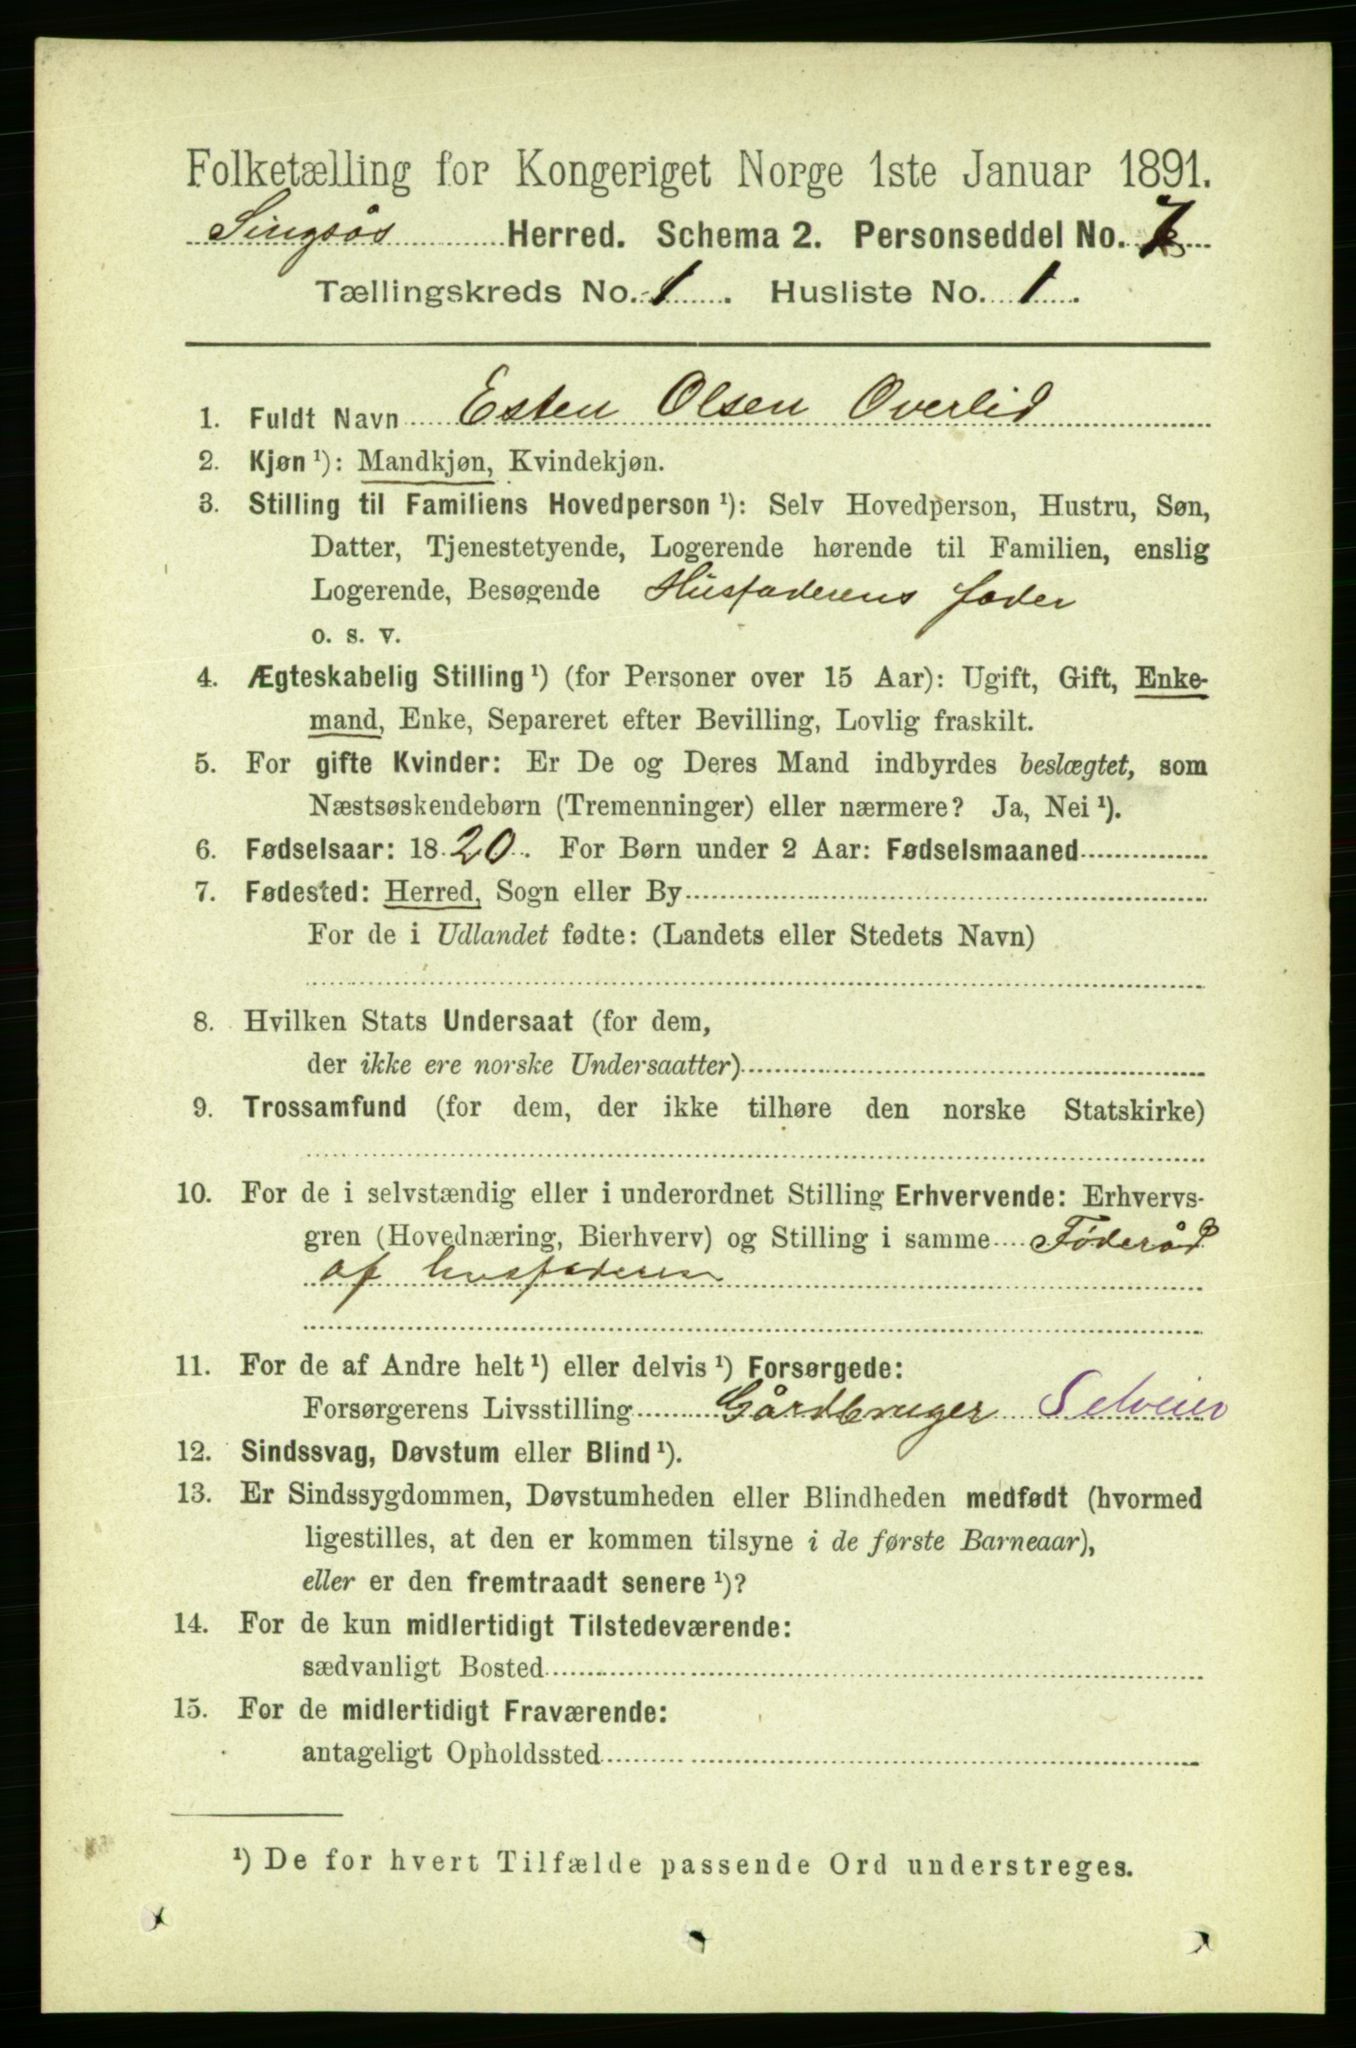 Folketælling for Kongeriget Norge 1ste Januar 1891.
Singsås Herred. Schema 2. Personseddel No. 7
Tællingskreds No. 1. Husliste No. 1.
1. Fuldt Navn Esten Olsen Overlid
2. Kjøn ¹): Mandkjøn, Kvindekjøn.
3. Stilling til Familiens Hovedperson ¹): Selv Hovedperson, Hustru, Søn,
Datter, Tjenestetyende, Logerende hørende til Familien, enslig
Logerende, Besøgende Husfaderens fader
o. s. v.
4. Ægteskabelig Stilling ¹) (for Personer over 15 Aar): Ugift, Gift, Enke-
mand, Enke, Separeret efter Bevilling, Lovlig fraskilt.
5. For gifte Kvinder: Er De og Deres Mand indbyrdes beslægtet, som
Næstsøskendebørn (Tremenninger) eller nærmere? Ja, Nei ¹).
6. Fødselsaar: 1820. For Børn under 2 Aar: Fødselsmaaned
7. Fødested: Herred, Sogn eller By
For de i Udlandet fødte: (Landets eller Stedets Navn)
8. Hvilken Stats Undersaat (for dem,
der ikke ere norske Undersaatter)
9. Trossamfund (for dem, der ikke tilhøre den norske Statskirke)
10. For de i selvstændig eller i underordnet Stilling Erhvervende: Erhvervs-
gren (Hovednæring, Bierhverv) og Stilling i samme Føderåd
af husfaderen
11. For de af Andre helt ¹) eller delvis ¹) Forsørgede:
Forsørgerens Livsstilling Gårdbruger Selveier
12. Sindssvag, Døvstum eller Blind ¹).
13. Er Sindssygdommen, Døvstumheden eller Blindheden medfødt (hvormed
ligestilles, at den er kommen tilsyne i de første Barneaar),
eller er den fremtraadt senere ¹)?
14. For de kun midlertidigt Tilstedeværende:
sædvanligt Bosted
15. For de midlertidigt Fraværende:
antageligt Opholdssted
¹) De for hvert Tilfælde passende Ord understreges.